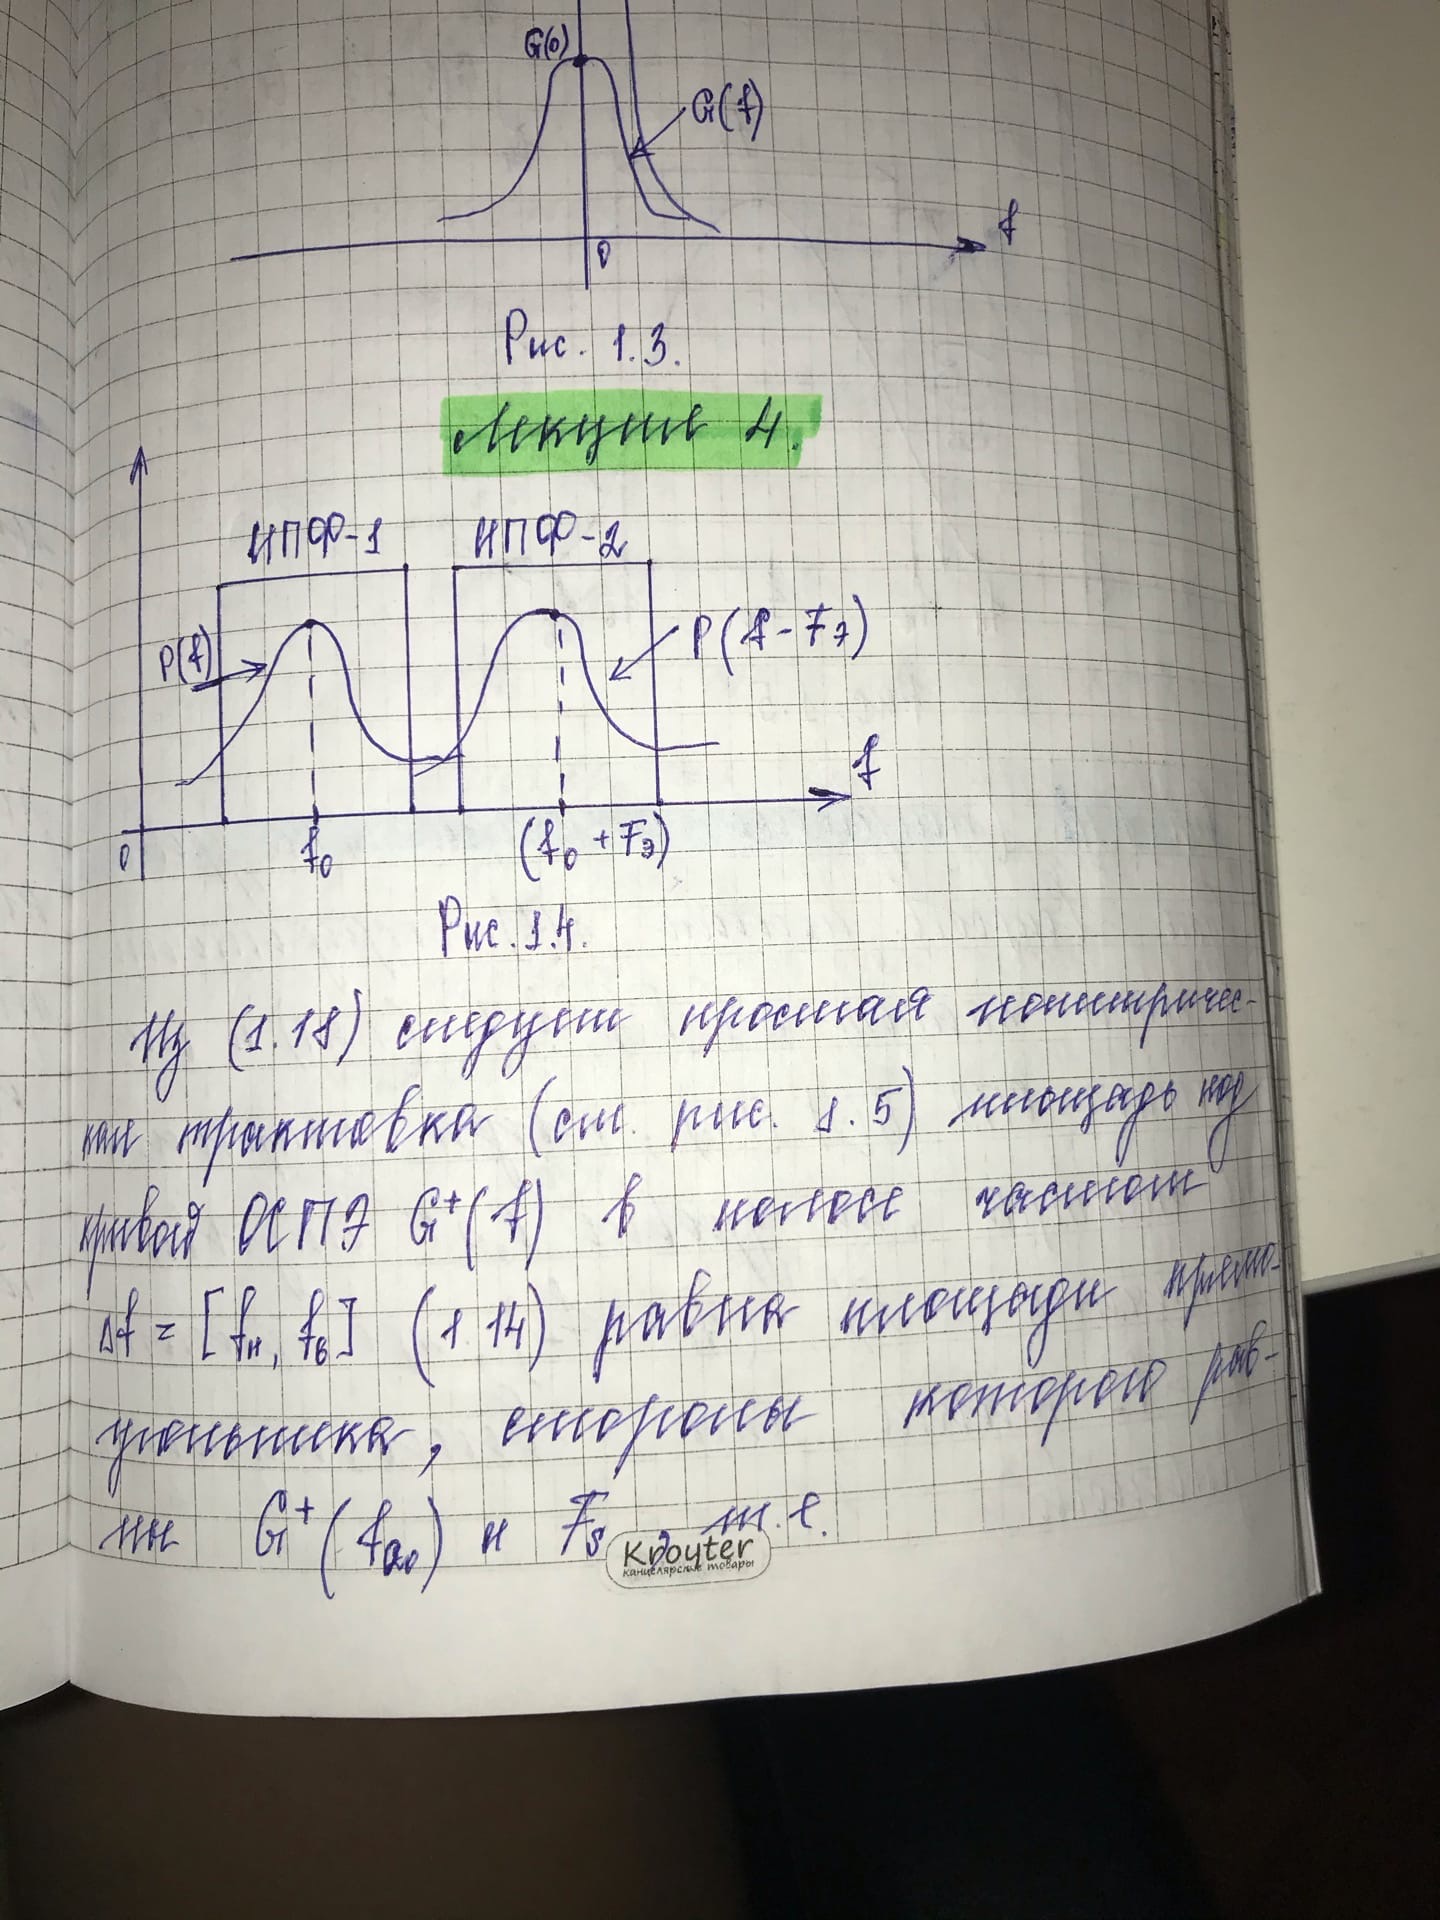 G(0)
G(f)
f
0
Рис. 1.3.
Лекция 4.
ИПФ-1 ИПФ-2
P(f)
P(f-Fэ)
f
0 f₀ (f₀ + Fэ)
Рис. 1.4.
Из (1.18) следует простая геометричес-
кая трактовка (см. рис. 1.5) площадь под
кривой ОСПЭ G⁺(f) в полосе частот
Δf = [fн, fв] (1.14) равна площади прямо-
угольника, стороны которого рав-
ны G⁺( и F , т.е.
Kroyter
канцелярские товары